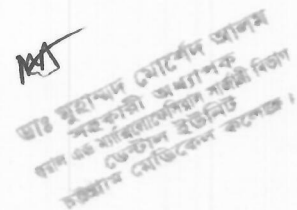 ডাঃ মুহাম্মদ মোর্শেদ আলম
সহকারী অধ্যাপক
ওরাল এন্ড ম্যাক্সিলোফেসিয়াল সার্জারী বিভাগ
ডেন্টাল ইউনিট
চট্টগ্রাম মেডিকেল কলেজ।